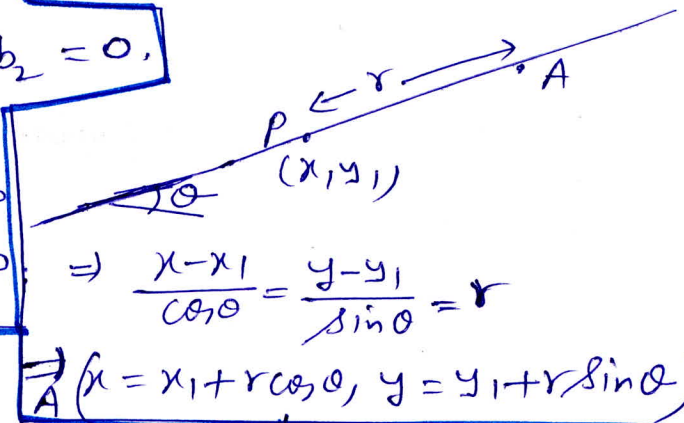 b₂ = 0.
← r →
P
A
(x₁y₁)
θ
⇒ x-x₁/cosθ = y-y₁/sinθ = r
⇒ A (x = x₁+rcosθ, y = y₁+rsinθ)